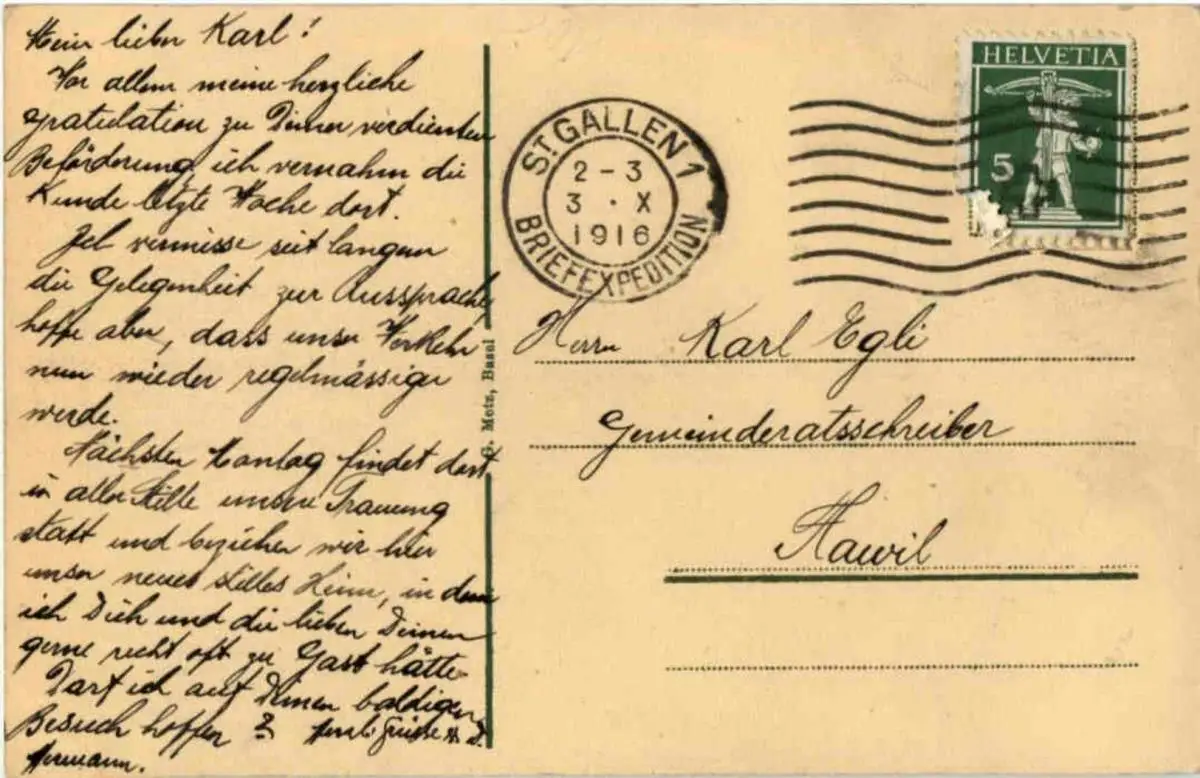 Mein lieber Karl!
Vor allem meine herzliche
gratulation zu Deiner verdienten
Beförderung, ich vernahm die
Kunde letzte Woche dort.
Ich vermisse seit langem
die Gelegenheit zur Aussprache,
hoffe aber, dass unser Verkehr
nun wieder regelmässiger
werde.
Nächsten Montag findet dort
in aller Stille unsere Trauung
statt und beziehen wir hier
unser neues stilles Heim, in dem
ich Dich und die lieben Deinen
gerne recht oft zu Gast hätte.
Darf ich auf Deinen baldigen
Besuch hoffen? Herzl. Grüsse
Hermann.
G. Metz, Basel
ST GALLEN 1
2-3
3 · X
1916
BRIEFEXPEDITION
HELVETIA
5
Herrn Karl Egli
Gemeinderatsschreiber
Flawil